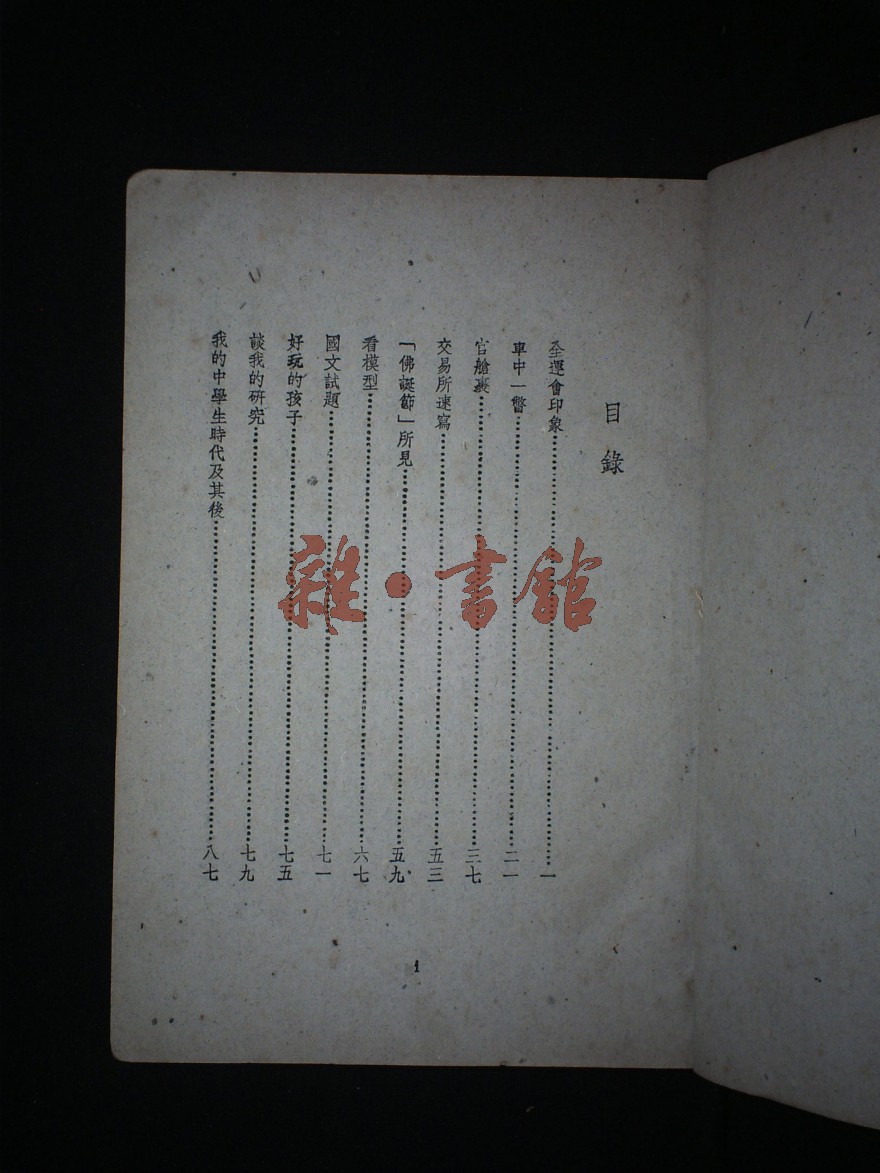 目錄
全運會印象……一
車中一瞥……二一
官艙裏……三七
交易所速寫……五三
「佛誕節」所見……五九
看模型……六七
國文試題……七一
好玩的孩子……七五
談我的研究……七九
我的中學生時代及其後……八七
1
雜·書館